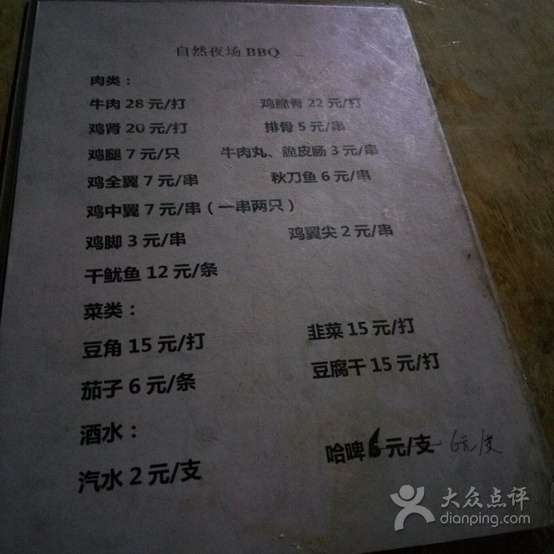 自然夜场 BBQ
肉类：
牛肉 28 元/打 鸡脆骨 22 元/打
鸡肾 20 元/打 排骨 5 元/串
鸡腿 7 元/只 牛肉丸、脆皮肠 3 元/串
鸡全翼 7 元/串 秋刀鱼 6 元/串
鸡中翼 7 元/串（一串两只）
鸡脚 3 元/串 鸡翼尖 2 元/串
干鱿鱼 12 元/条
菜类：
豆角 15 元/打 韭菜 15 元/打
茄子 6 元/条 豆腐干 15 元/打
酒水：
汽水 2 元/支 哈啤 6 元/支 6元/支
大众点评
dianping.com